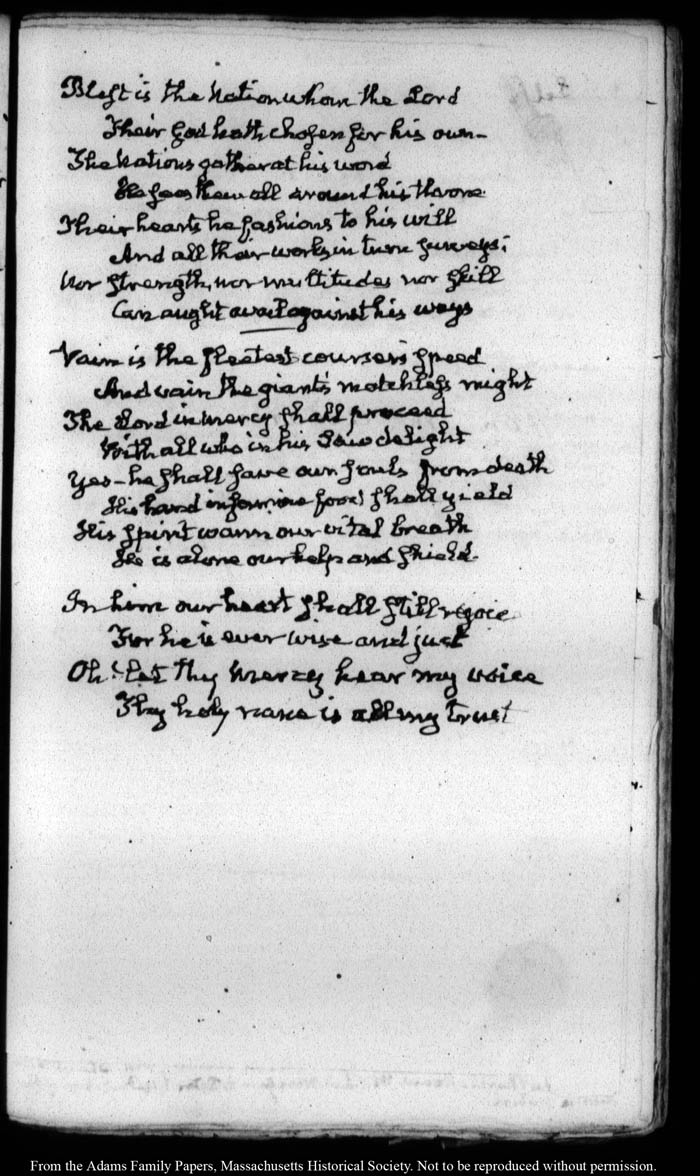 Blest is the Nation whom the Lord
Their God hath chosen for his own—
The Nations gather at his word
He sees them all around his throne.
Their hearts he fashions to his will
And all their works in turn surveys;
Nor strength, nor multitudes nor skill
Can aught avail against his ways
Vain is the fleetest courser's speed
And vain the giant's matchless might
The Lord in mercy shall proceed
With all who in his Law delight
Yes—he shall save our souls from death
His hand in famine food shall yield
His spirit warm our vital breath
He is alone our help and shield.
In him our heart shall still rejoice
For he is ever wise and just
Oh! let thy mercy hear my voice
Thy holy name is all my trust
From the Adams Family Papers, Massachusetts Historical Society. Not to be reproduced without permission.